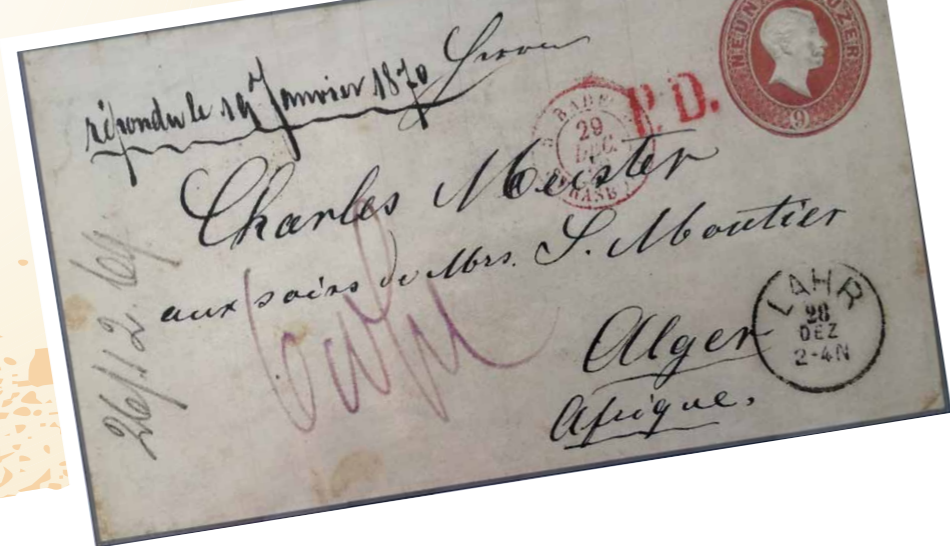 répondu le 19 Janvier 1870
P.D.
BADE
29
DEC.
STRASB
Charles Meister
aux soins de Mrs. S. Moutier
Alger
Afrique.
LAHR
28
DEZ
2-4N
26/12.69
9